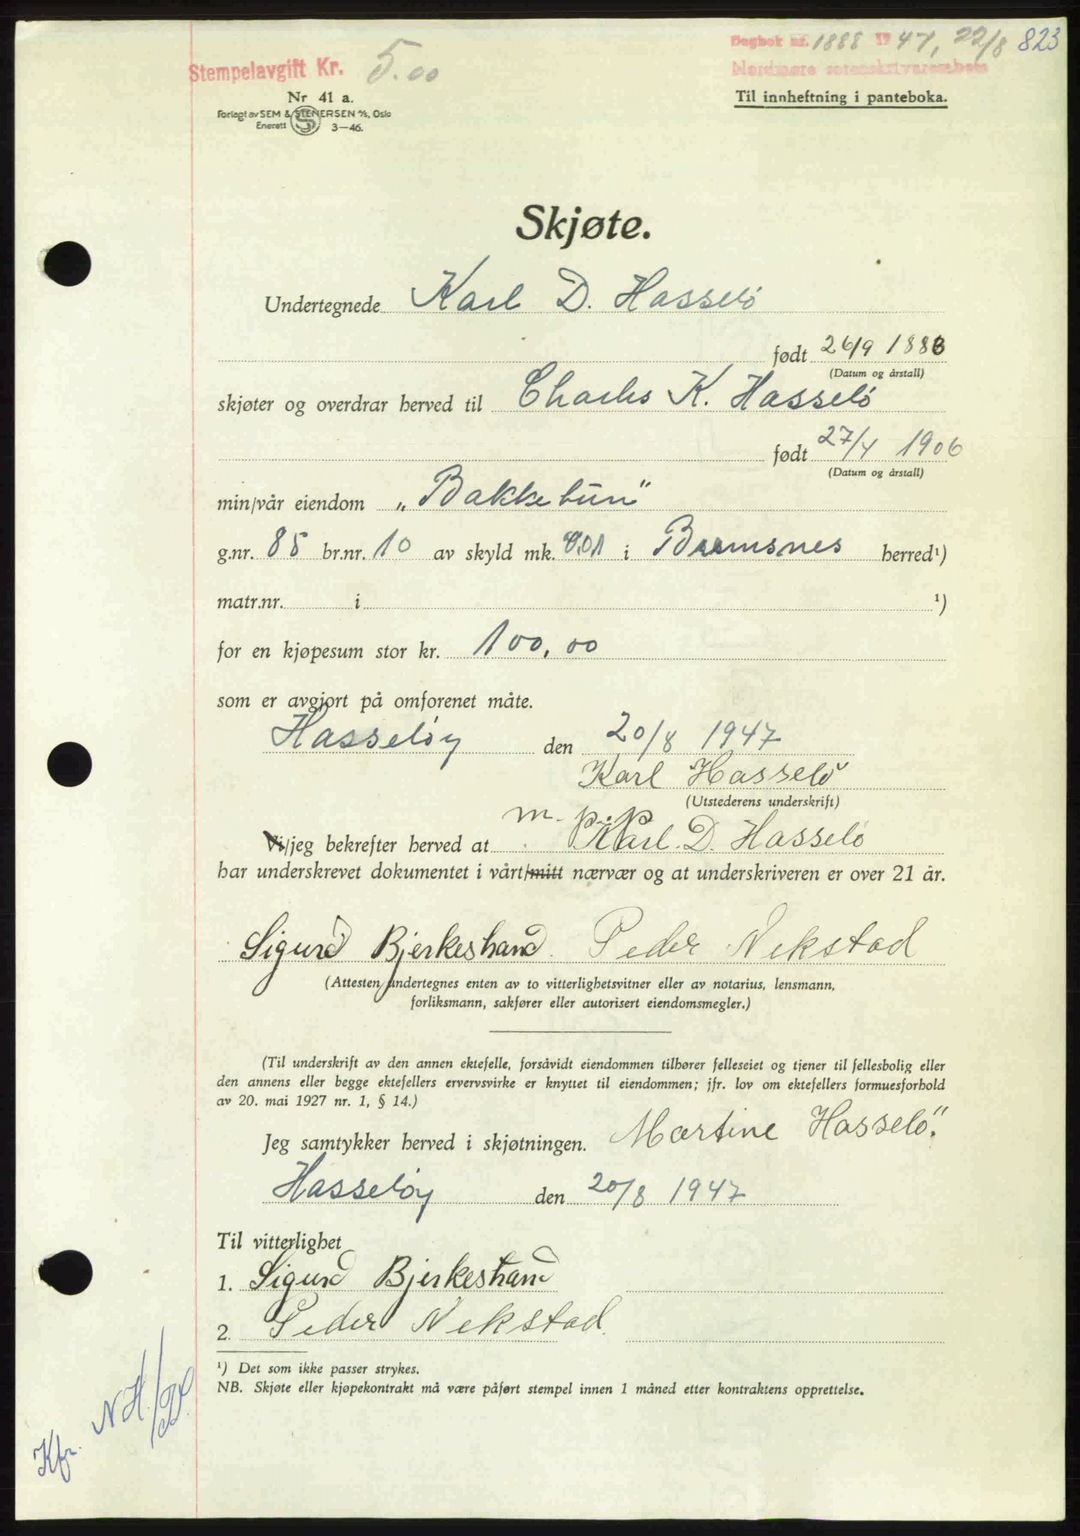 Dagbok nr. 1888 1947, 22/8 823
Stempelavgift Kr. 5.00
Nordmøre sorenskriverembete
Nr 41 a.
Til innheftning i panteboka.
Forlagt av SEM & STENERSEN A/S, Oslo
Enerett 3—46.
Skjøte.
Undertegnede Karl D. Hasselø
født 26/9 1883
(Datum og årstall)
skjøter og overdrar herved til Charles K. Hasselø
født 27/4 1906
(Datum og årstall)
min/vår eiendom „Bakketun"
g.nr. 85 br.nr. 10 av skyld mk. 0.01 i Bremsnes herred¹)
matr.nr. i ¹)
for en kjøpesum stor kr. 100,00
som er avgjort på omforenet måte.
Hasseløy den 20/8 1947
Karl Hasselø
(Utstederens underskrift)
m. p. p.
Vi/jeg bekrefter herved at Karl D. Hasselø
har underskrevet dokumentet i vårt/mitt nærvær og at underskriveren er over 21 år.
Sigurd Bjerkestrand. Peder Nekstad
(Attesten undertegnes enten av to vitterlighetsvitner eller av notarius, lensmann,
forliksmann, sakfører eller autorisert eiendomsmegler.)
(Til underskrift av den annen ektefelle, forsåvidt eiendommen tilhører felleseiet og tjener til fellesbolig eller
den annens eller begge ektefellers ervervsvirke er knyttet til eiendommen; jfr. lov om ektefellers formuesforhold
av 20. mai 1927 nr. 1, § 14.)
Jeg samtykker herved i skjøtningen. Martine Hasselø.
Hasseløy den 20/8 1947
Til vitterlighet
1. Sigurd Bjerkestrand
2. Peder Nekstad
¹) Det som ikke passer strykes.
NB. Skjøte eller kjøpekontrakt må være påført stempel innen 1 måned etter kontraktens opprettelse.
Kfr. NH/